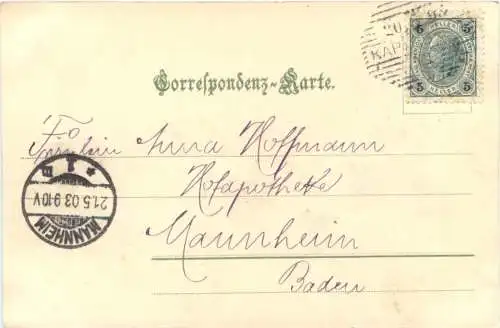 20
KAP
5 HELLER 5
5 HELLER 5
Correspondenz-Karte.
Fräulein Anna Hoffmann
Hofapotheke
Mannheim
Baden
MANNHEIM
21.5.03 9-10V
* 1 m